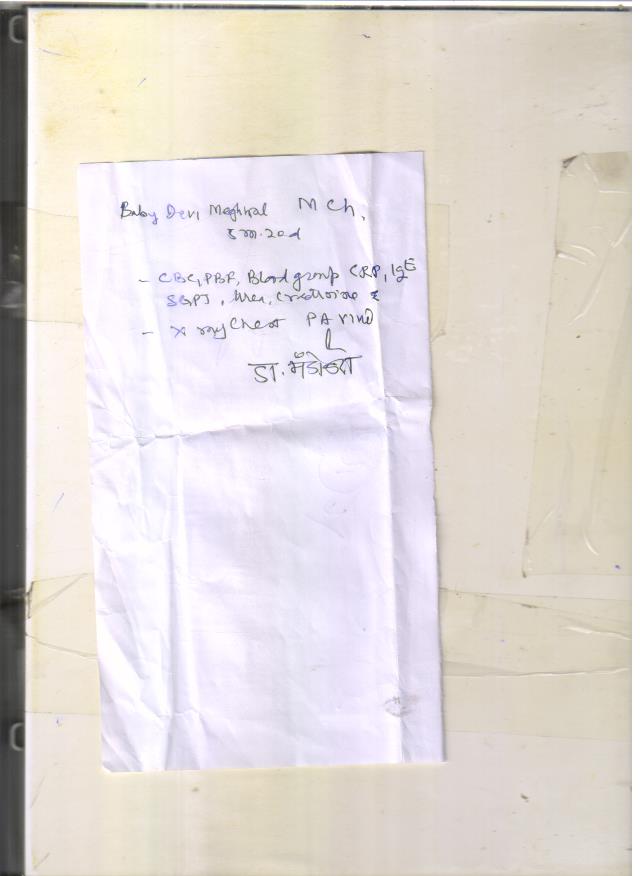 Baby Devi Meghwal M Ch,
- CBC, PBF, Blood group CRP, IgE
SGPT, Urea, Creatinine &
- X ray Chest PA view
डा.